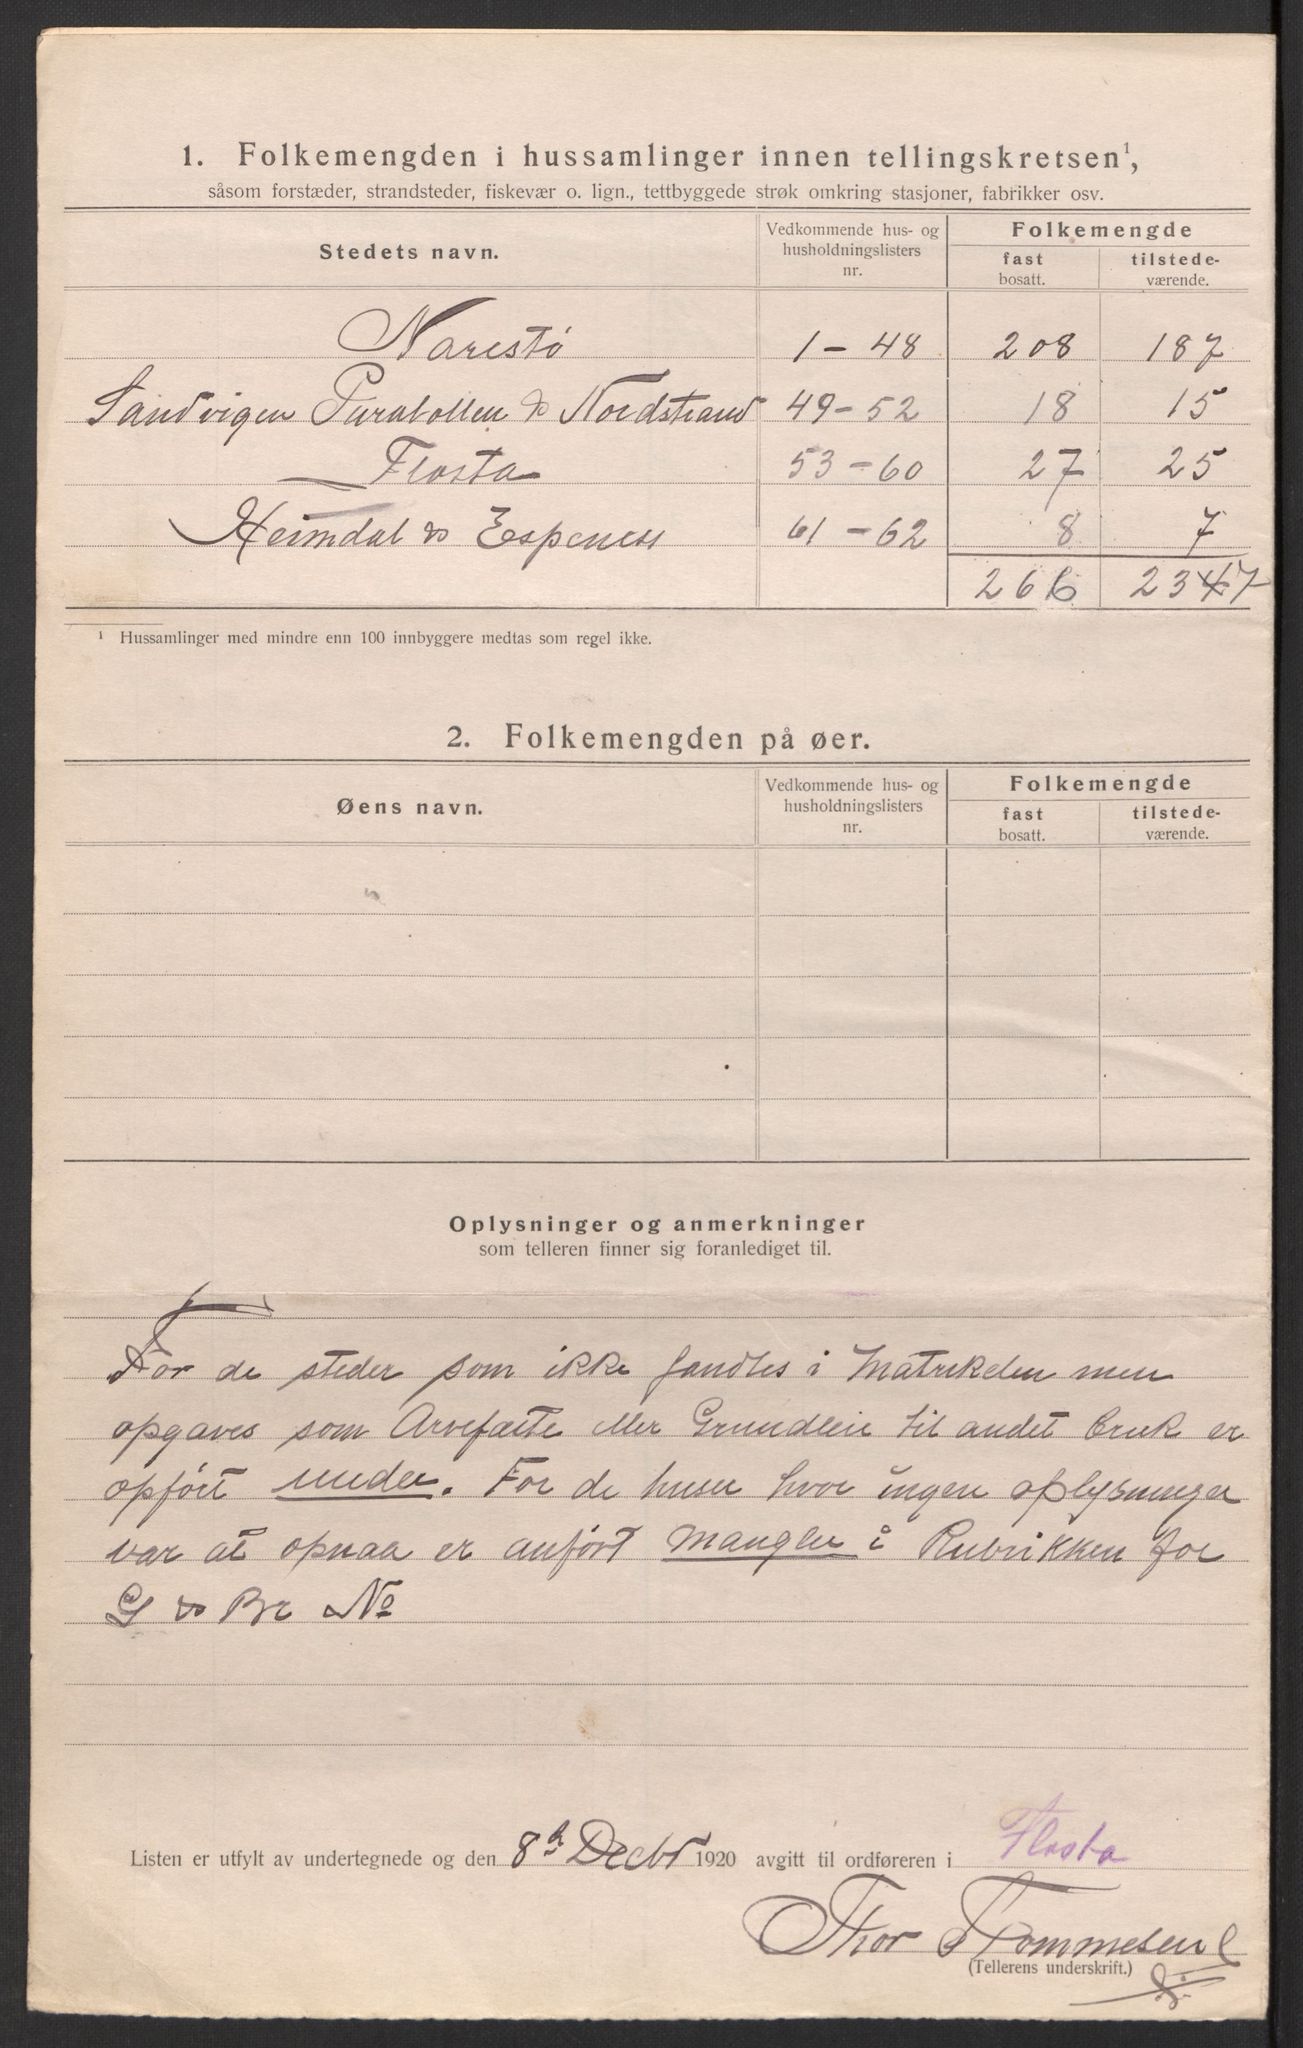 1. Folkemengden i hussamlinger innen tellingskretsen¹,
såsom forstæder, strandsteder, fiskevær o. lign., tettbyggede strøk omkring stasjoner, fabrikker osv.
Stedets navn. Vedkommende hus- og husholdningslisters nr. Folkemengde
fast bosatt. tilstede-værende.
Narestø 1 - 48 208 187
Sandvigen & Nordstrand 49 - 52 18 15
Flosta 53 - 60 27 25
Heimdal & Espeness 61 - 62 8 7
266 2347
¹ Hussamlinger med mindre enn 100 innbyggere medtas som regel ikke.
2. Folkemengden på øer.
Øens navn. Vedkommende hus- og husholdningslisters nr. Folkemengde
fast bosatt. tilstede-værende.
Oplysninger og anmerkninger
som telleren finner sig foranlediget til.
For de steder som ikke fandtes i Matrikelen men
opgaves som Arvefæste eller Grundleie til andet bruk er
opført under. For de huser hvor ingen oplysninger
var at opnaa er anført mangler i Rubrikken for
G & Br No
Listen er utfylt av undertegnede og den 8de Decbr 1920 avgitt til ordføreren i Flosta
Thor Tommesen
(Tellerens underskrift.)